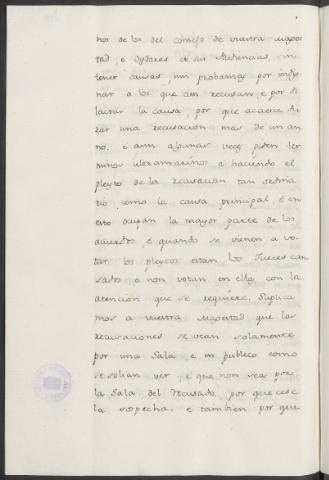 nos de los del consejo de vuestra Magestad, e Oydores de sus Audiencias, in
tener causas, nin probanzas por infor
nar a los que asi recusan, e por di
latar la causa, por que acaece du
rar una recusacion mas de un an
no, e aun algunas veces piden ter
minos ultramarinos e haciendo el
pleyto de la recusacion tan ordina
rio como la causa principal, e en
esto ocupan la mayor parte de los
acuerdos, e quando se vienen a vo
tar los pleytos estan los Jueces can
sados, e non votan en ello, con la
atencion que se requiere. Suplica
mos a vuestra Magestad que las
recusaciones se vean solamente
por una Sala, e in publico como
se solian ver, e que non sea por
la Sala del recusado, por que cese
la sospecha, e tambien por que